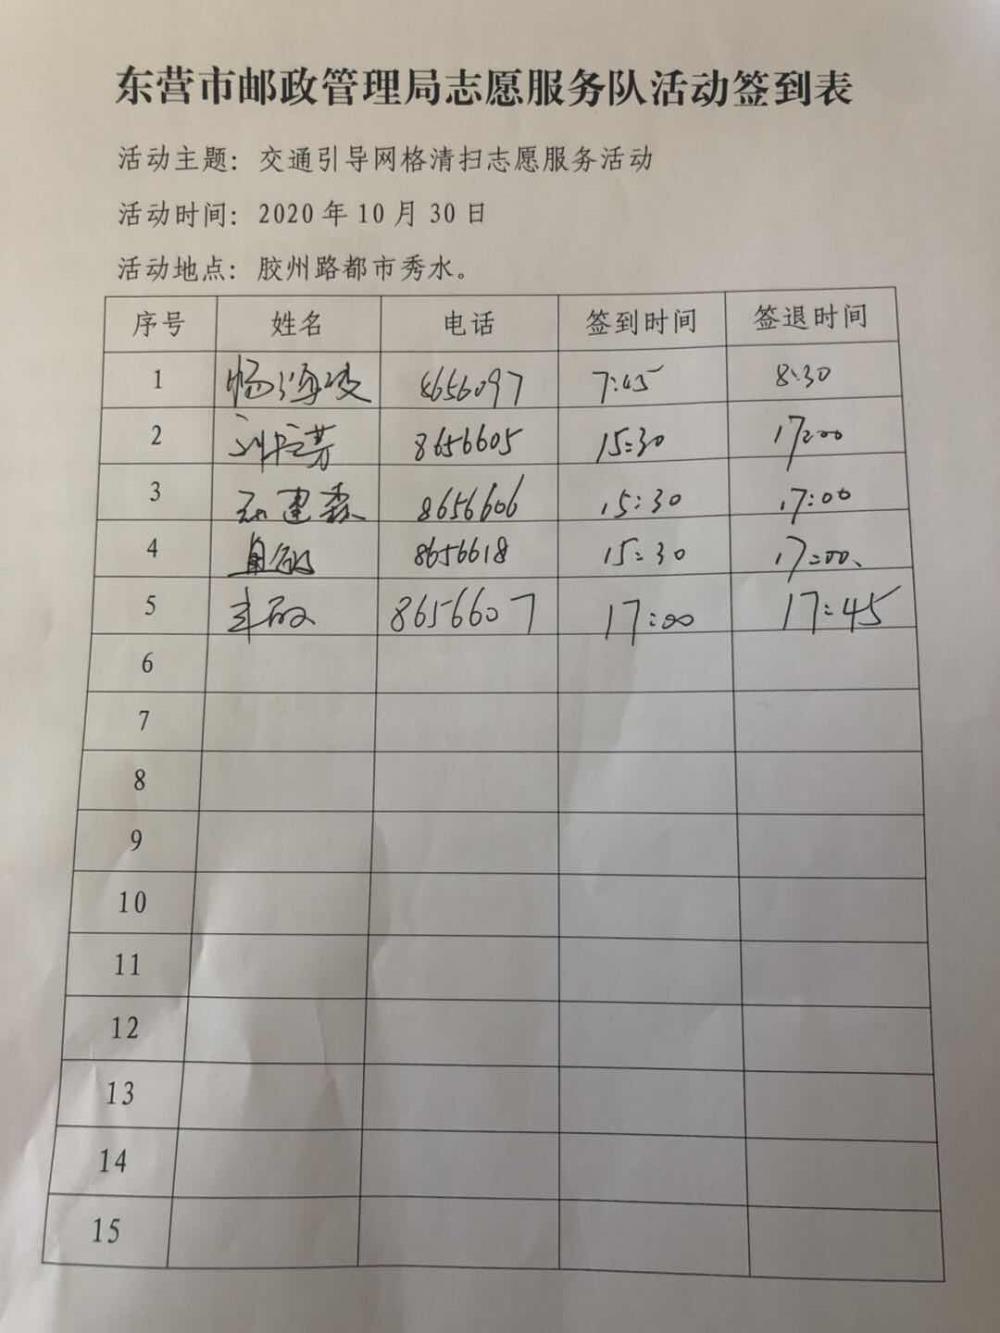 东营市邮政管理局志愿服务队活动签到表
活动主题：交通引导网格清扫志愿服务活动
活动时间：2020年10月30日
活动地点：胶州路都市秀水。
序号 姓名 电话 签到时间 签退时间
1 8656097 7:45 8:30
2 8656605 15:30 17:00
3 8656606 15:30 17:00
4 8656618 15:30 17:00
5 8656607 17:00 17:45
6
7
8
9
10
11
12
13
14
15